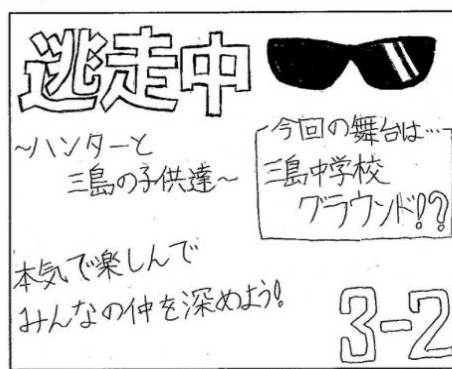 逃走中
~ハンターと
三島の子供達~
今回の舞台は…
三島中学校
グラウンド!?
本気で楽しんで
みんなの仲を深めよう!
3-2